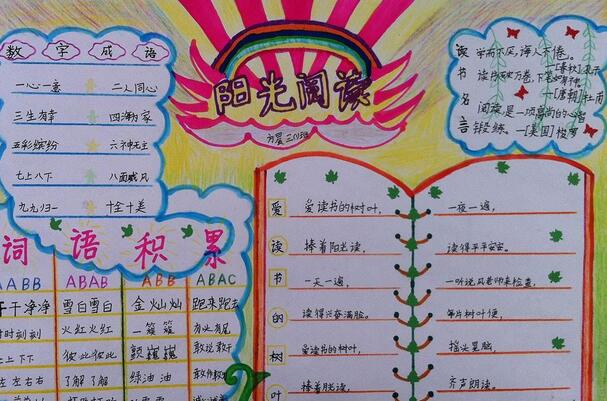 数字成语
一心一意 二人同心
三生有幸 四海为家
五彩缤纷 六神无主
七上八下 八面威风
九九归一 十全十美
阳光阅读
读书名言
学而不厌,诲人不倦。
—[春秋]
读书破万卷,下笔如有神。
—[唐朝]杜甫
阅读是一项高尚的心智
锻炼。—[美国]梭罗
词语积累
AABB ABAB ABB ABAC
干干净净 雪白雪白 金灿灿 跑来跑去
时时刻刻 火红火红 一簇簇 有头有尾
上上下下 彼此彼此 颤巍巍 敢说敢干
左左右右 了解了解 绿油油
爱读书的树叶
爱读书的树叶,
捧着阳光读,
一天一遍,
读得兴奋满脸。
爱读书的树叶,
捧着月光读,
一夜一遍,
读得平平安安。
一听说风老师来检查,
每片树叶便,
摇头晃脑,
齐声朗读。